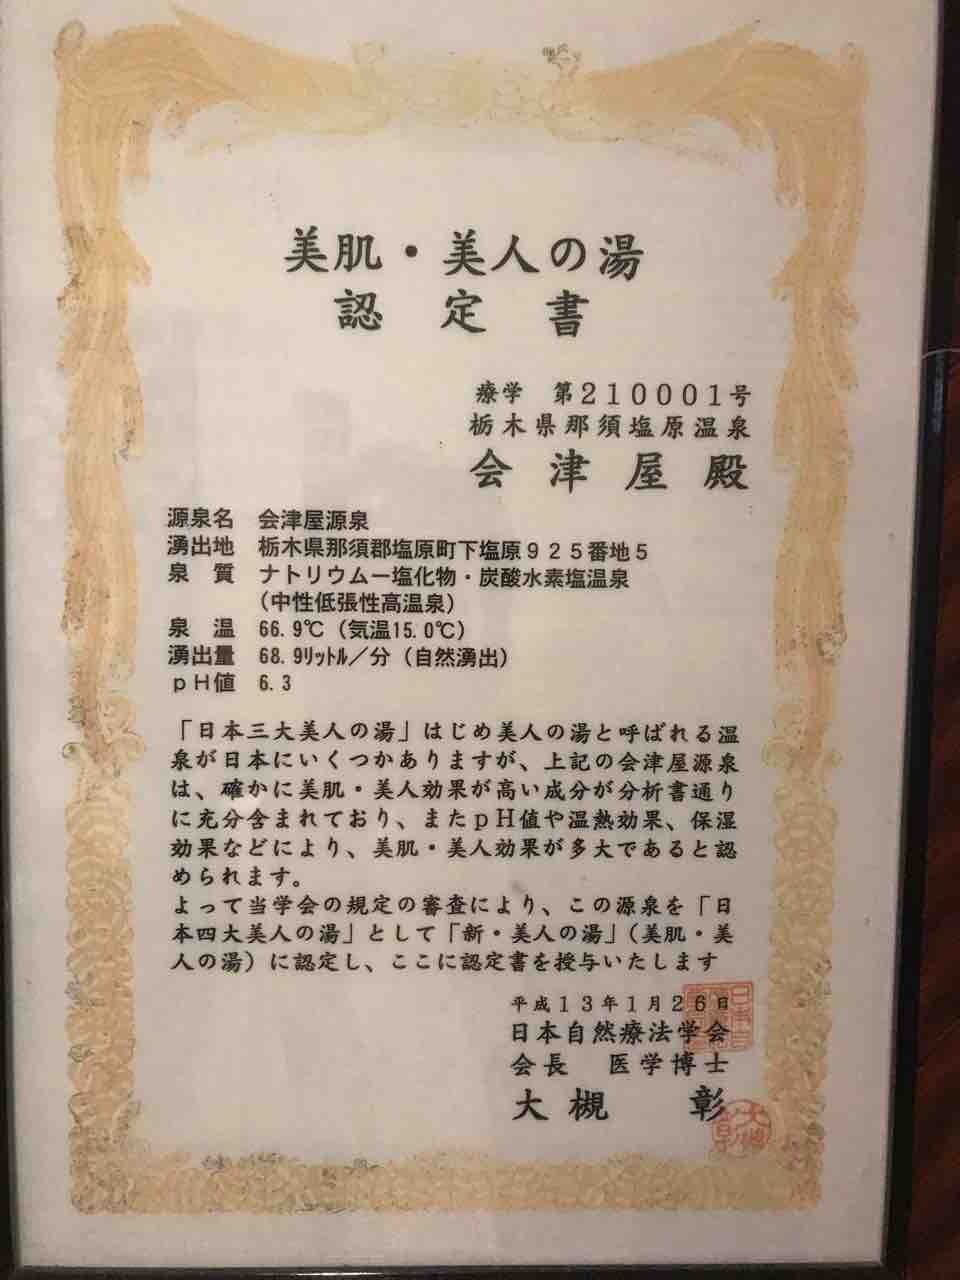 美肌・美人の湯
認定書
療学 第210001号
栃木県那須塩原温泉
会津屋殿
源泉名 会津屋源泉
湧出地 栃木県那須郡塩原町下塩原925番地5
泉質 ナトリウムー塩化物・炭酸水素塩温泉
(中性低張性高温泉)
泉温 66.9℃(気温15.0℃)
湧出量 68.9リットル/分(自然湧出)
pH値 6.3
「日本三大美人の湯」はじめ美人の湯と呼ばれる温
泉が日本にいくつかありますが、上記の会津屋源泉
は、確かに美肌・美人効果が高い成分が分析書通り
に充分含まれており、またpH値や温熱効果、保湿
効果などにより、美肌・美人効果が多大であると認
められます。
よって当学会の規定の審査により、この源泉を「日
本四大美人の湯」として「新・美人の湯」(美肌・美
人の湯)に認定し、ここに認定書を授与いたします
平成13年1月26日
日本自然療法学会
会長 医学博士
大槻 彰